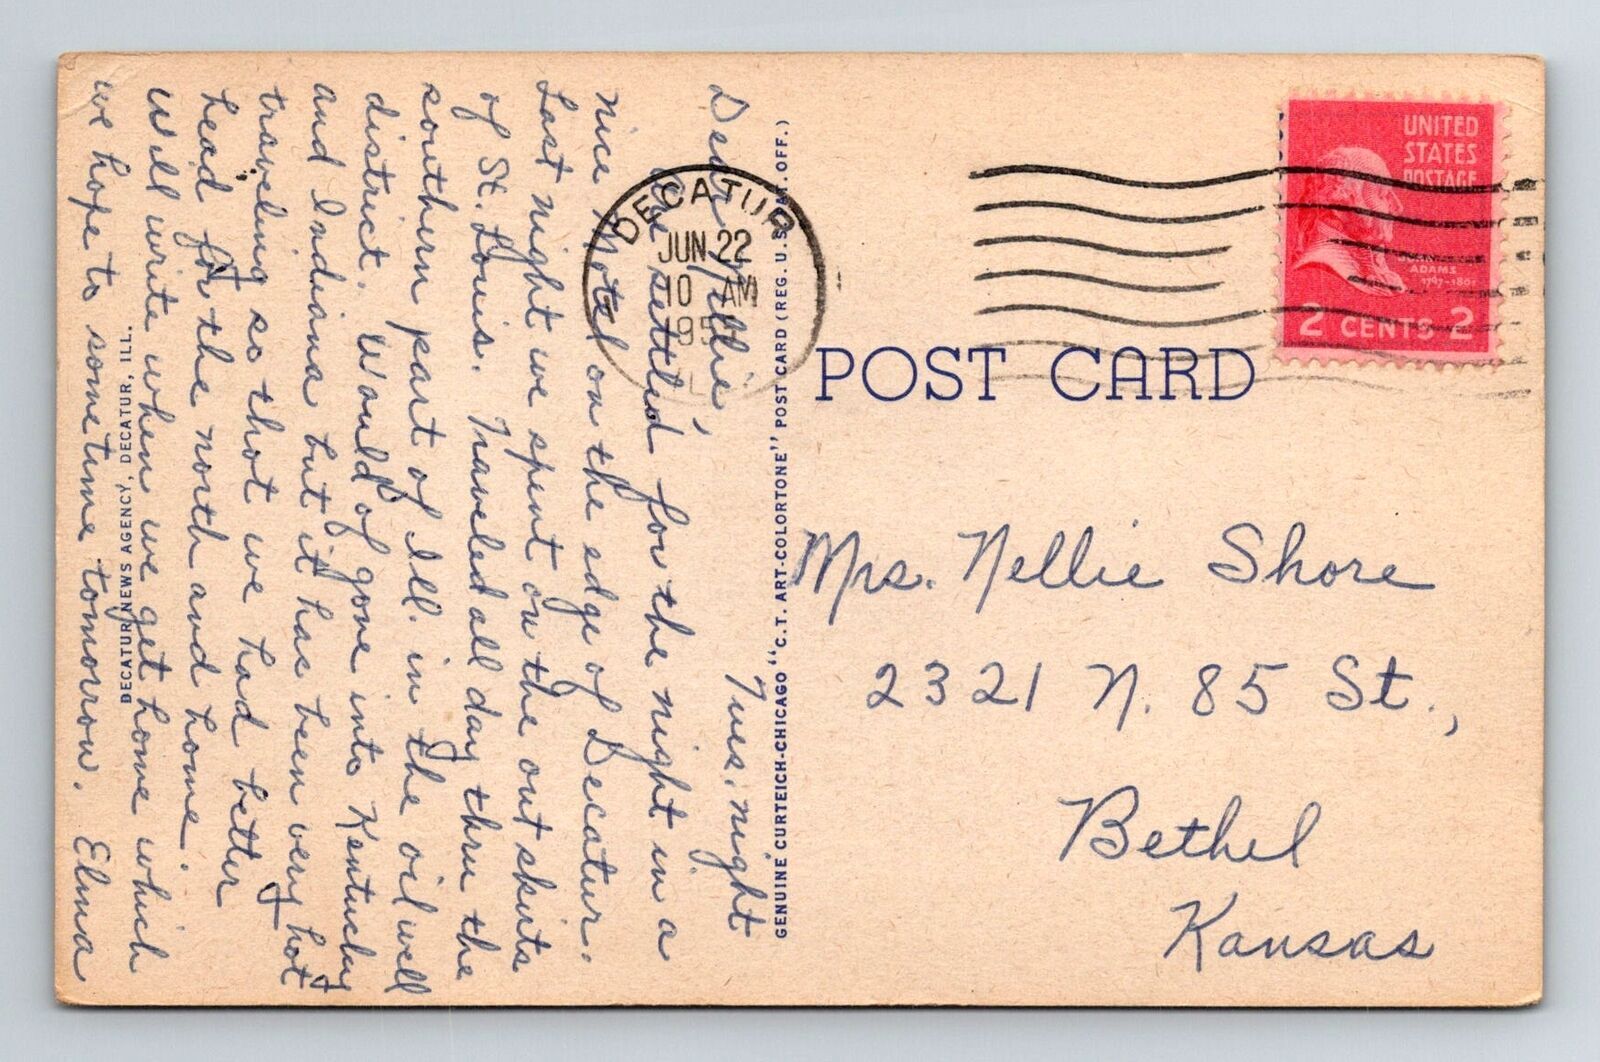 Tues. night
Dear Nellie,
are settled for the night in a
nice Motel on the edge of Decatur.
Last night we spent on the out skirts
of St. Louis. Traveled all day thru the
southern part of Ill. in the oil well
district. Would of gone into Kentucky
and Indiana but it has been very hot
traveling so thot we had better
head for the north and home.
Will write when we get home which
we hope to sometime tomorrow. Elma
DECATUR NEWS AGENCY, DECATUR, ILL.
GENUINE CURTEICH-CHICAGO "C.T. ART-COLORTONE" POST CARD (REG. U.S. PAT. OFF.)
DECATUR
JUN 22
10 AM
195
ILL
UNITED
STATES
POSTAGE
ADAMS
1797-1801
2 CENTS 2
POST CARD
Mrs. Nellie Shore
2321 N. 85 St.,
Bethel
Kansas